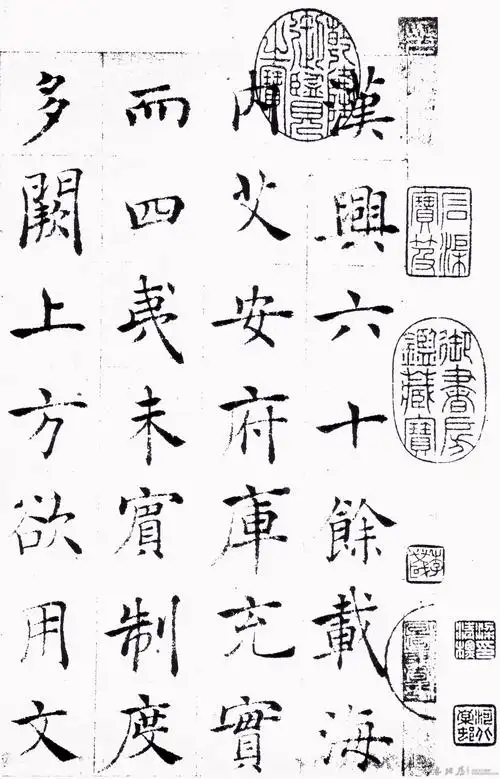 石渠
寶笈
御書房
鑑藏寶
乾隆
御覽
之寶
漢興六十餘載海
內艾安府庫充實
而四夷未賓制度
多闕上方欲用文